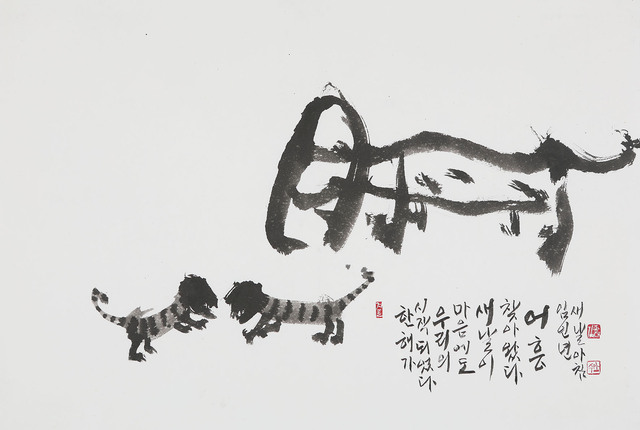 한해가
시작되었다
우리의
마음에도
새날이
찾아왔다
어흥
임인년
새날아침